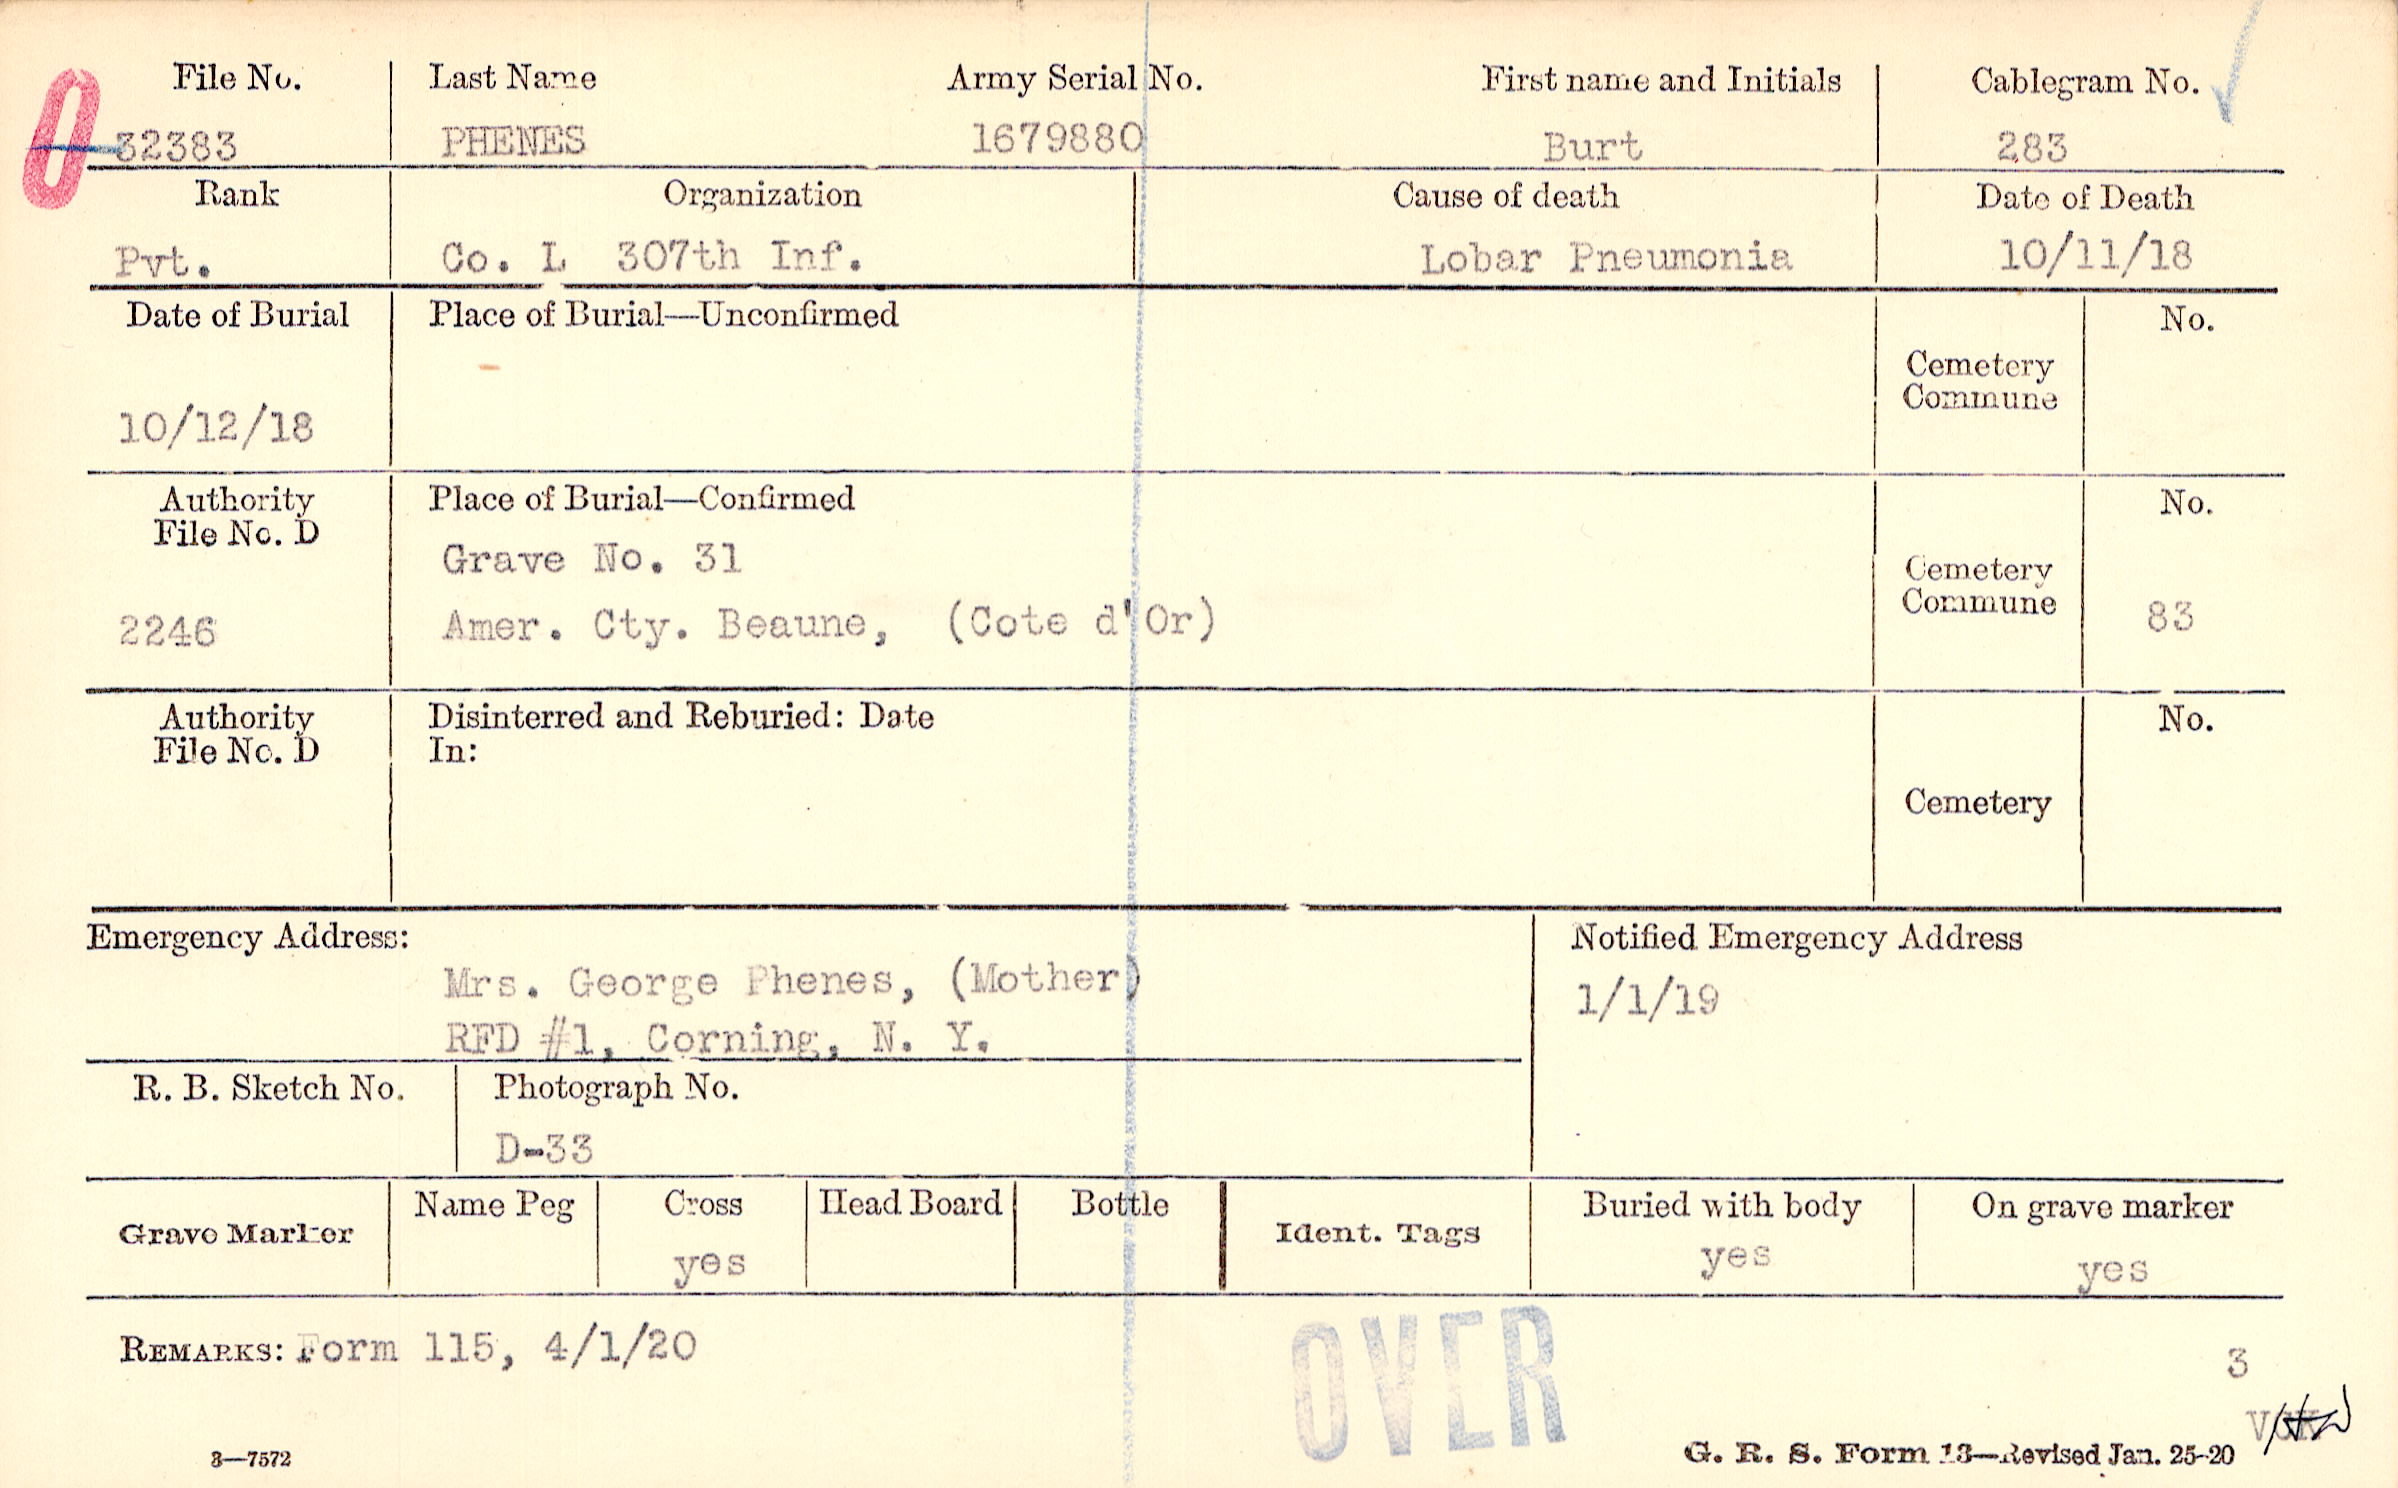 File No. Last Name Army Serial No. First name and Initials Cablegram No.
0 32383 PHENES 1679880 Burt 283
Rank Organization Cause of death Date of Death
Pvt. Co. L 307th Inf. Lobar Pneumonia 10/11/18
Date of Burial Place of Burial—Unconfirmed No.
Cemetery
Commune
10/12/18
Authority Place of Burial—Confirmed No.
File No. D
Grave No. 31
Cemetery
Commune
2246 Amer. Cty. Beaune, (Cote d'Or) 83
Authority Disinterred and Reburied: Date No.
File No. D In:
Cemetery
Emergency Address: Notified Emergency Address
Mrs. George Phenes, (Mother) 1/1/19
RFD #1, Corning, N. Y.
R. B. Sketch No. Photograph No.
D-33
Grave Marker Name Peg Cross Head Board Bottle Ident. Tags Buried with body On grave marker
yes yes yes
REMARKS: Form 115, 4/1/20
OVER
3
3—7572 G. R. S. Form 13—Revised Jan. 25-20